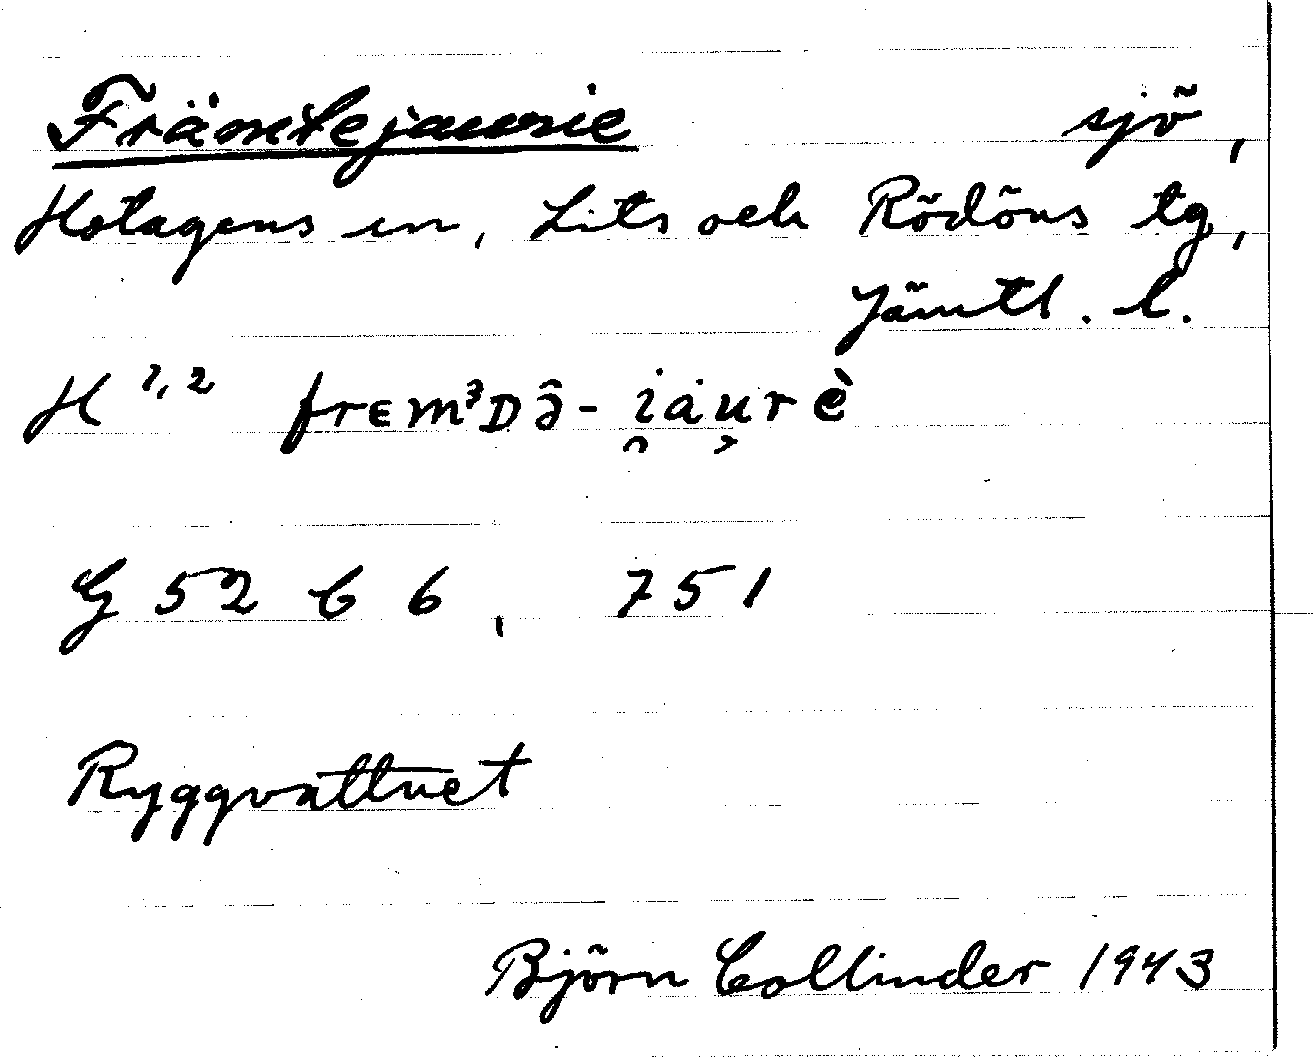 Främtejaurie sjö,
Hotagens sn, Lits och Rödöns tg,
Jämtl. l.
H 1,2 frɛm³Də̂- i̯ȧu̜rè
G 52 C 6, 751
Ryggvattnet
Björn Collinder 1943